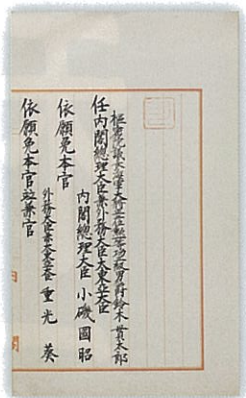 樞密院議長海軍大將從二位勲一等功三級男爵鈴木貫太郎
任内閣總理大臣兼外務大臣大東亞大臣
内閣總理大臣 小磯國昭
依願免本官
外務大臣兼大東亞大臣 重光葵
依願免本官竝兼官